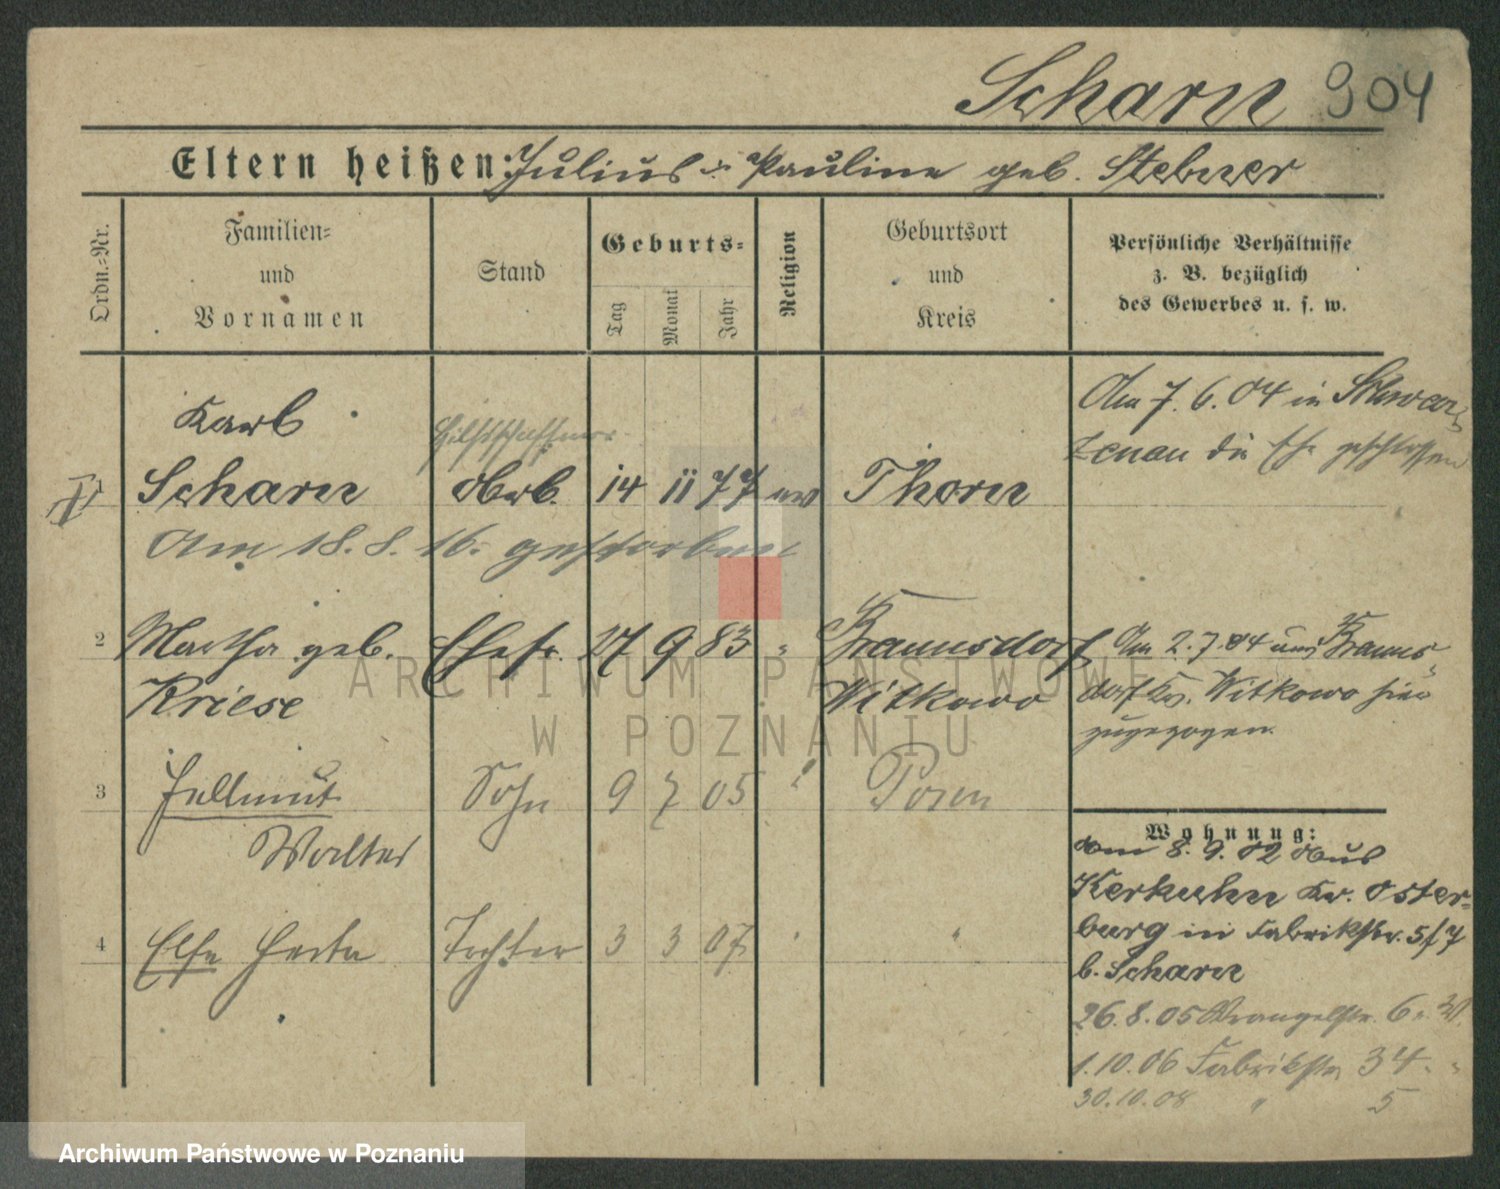 Scharn 904
Eltern heißen: Julius u. Pauline geb. Stebner
Ordn.-Nr.
Familien-
und
Vornamen
Stand
Geburts-
Tag
Monat
Jahr
Religion
Geburtsort
und
Kreis
Persönliche Verhältnisse
z. B. bezüglich
des Gewerbes u. s. w.
Karl
Scharn
Hilfsschaffner
14 11 77 ev Thorn
Am 18. 8. 16. gestorben
Am 7. 6. 04 in Schwar-
zenau die Ehe geschlossen
2 Martha geb. Ehefr. 27 9 83 " Braunsdorf
Kriese Witkowo
Am 2. 7. 04 aus Brauns-
dorf Kr. Witkowo hier
zugezogen.
3 Hellmut Sohn 9 7 05 " Posen
Walter
4 Else Herta Tochter 3 3 07 " "
Wohnung:
Am 8. 9. 02 aus
Kerkuhn Kr. Oster-
burg in Fabrikstr. 5/7
b. Scharn
26. 8. 05 Wrangelstr. 6. W.
1. 10. 06 Fabrikstr 34 " "
30. 10. 08 " 5
ARCHIWUM PAŃSTWOWE
W POZNANIU
Archiwum Państwowe w Poznaniu